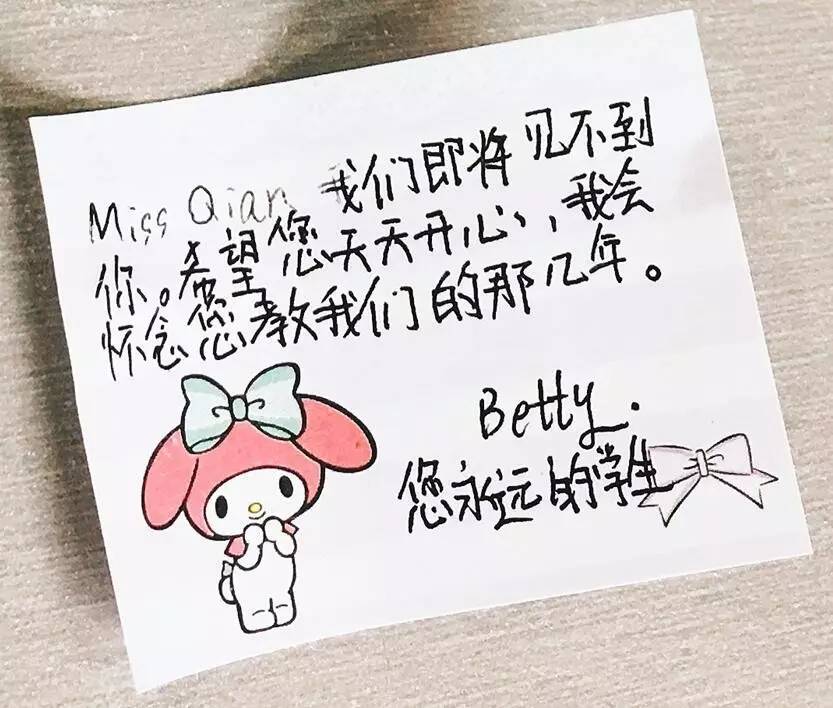 Miss Qian 我们即将见不到
你。希望您天天开心,我会
怀念您教我们的那几年。
Betty.
您永远的学生